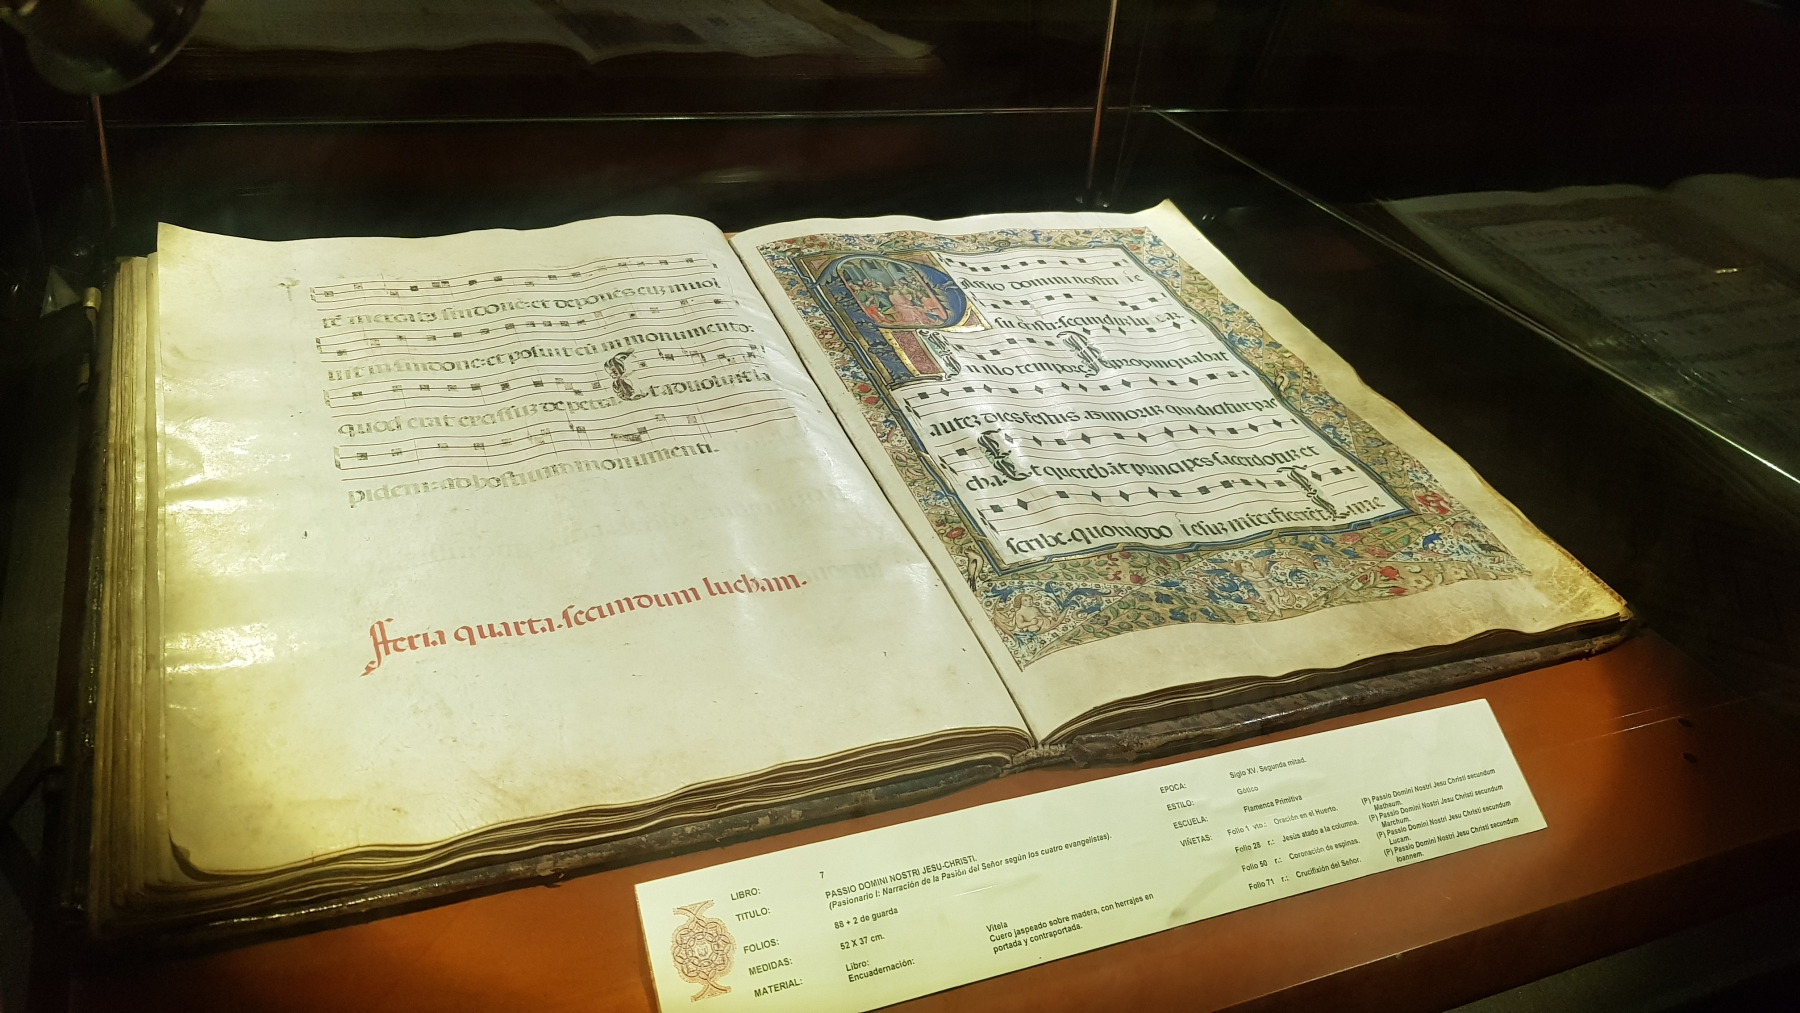 mercatus sindone: et deponēs eum iuol
uit in sindone: et posuit eū in monumento:
quod erat excissuz de petra Et aduoluit la
pidem: ad hostium monumenti.
fferia quarta. secundum lucham.
Passio domini nostri ie
su christi: secunduz lu cā.
In illo tempore Apropinquabat
autez dies festus asimoruz qui dicitur pas
cha. Et querebāt principes sacerdotuz et
scribe. quomodo iesuz interficerēt. Time
LIBRO: 7
TITULO: PASSIO DOMINI NOSTRI JESU-CHRISTI.
(Pasionario I: Narración de la Pasión del Señor según los cuatro evangelistas).
FOLIOS: 88 + 2 de guarda
MEDIDAS: 52 X 37 cm.
MATERIAL: Libro: Vitela
Encuadernación: Cuero jaspeado sobre madera, con herrajes en
portada y contraportada.
EPOCA: Siglo XV. Segunda mitad.
ESTILO: Gótico
ESCUELA: Flamenca Primitiva
VIÑETAS: Folio 1 vto.: Oración en el Huerto. (P) Passio Domini Nostri Jesu Christi secundum
Matheum.
Folio 28 r.: Jesús atado a la columna. (P) Passio Domini Nostri Jesu Christi secundum
Marchum.
Folio 50 r.: Coronación de espinas. (P) Passio Domini Nostri Jesu Christi secundum
Lucam.
Folio 71 r.: Crucifixión del Señor. (P) Passio Domini Nostri Jesu Christi secundum
Ioannem.